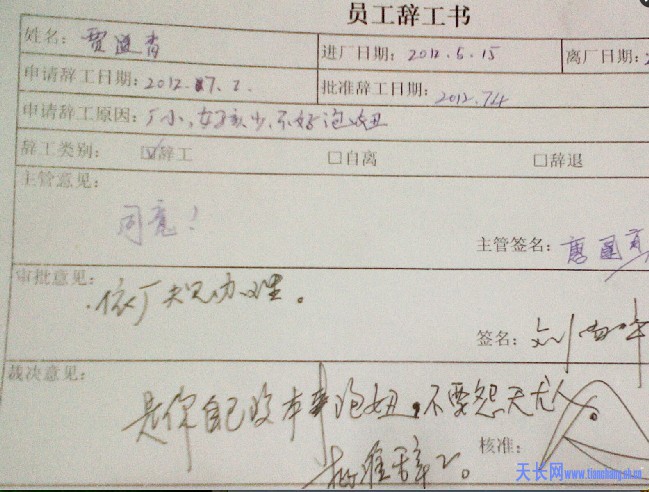 员工辞工书
姓名: 贾
进厂日期: 2012.5.15
离厂日期: 2
申请辞工日期: 2012.7.2.
批准辞工日期: 2012.7.4
申请辞工原因: 厂小,女孩少,不好泡妞
辞工类别: ☑辞工 □自离 □辞退
主管意见:
同意!
主管签名: 唐国
审批意见:
依厂规办理。
签名: 刘
裁决意见:
是你自己没本事泡妞,不要怨天尤人。
核准:
批准辞工。
天长网www.tianchang.ah.cn